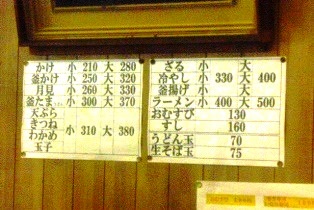 かけ 小 210 大 280
釜かけ 小 250 大 320
月見 小 260 大 330
釜たま 小 300 大 370
天ぷら
きつね
わかめ
玉子
小 310 大 380
ざる 小 大
冷やし 小 330 大 400
釜揚げ 小 大
ラーメン 小 400 大 500
おむすび 130
すし 160
うどん玉 70
生そば玉 75